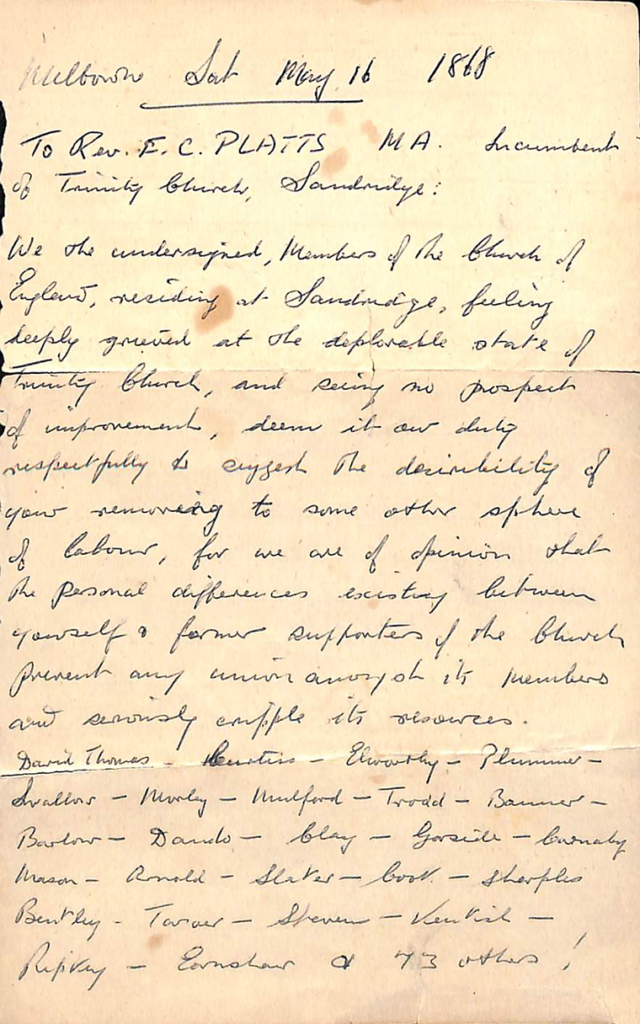 Melbourne Sat May 16 1868
To Rev. F. C. PLATTS MA. Incumbent
of Trinity Church, Sandridge:
We the undersigned, Members of the Church of
England, residing at Sandridge, feeling
deeply grieved at the deplorable state of
Trinity Church, and seeing no prospect
of improvement, deem it our duty
respectfully to suggest the desirability of
your removing to some other sphere
of labour, for we are of opinion that
the personal differences existing between
yourself & former supporters of the Church
prevent any union amongst its members
and seriously cripple its resources.
David Thomas - Curtiss - Elworthy - Plummer -
Swallow - Morley - Mulford - Trodd - Banner -
Barlow - Dando - Clay - Garside - Carnaby
Mason - Arnold - Slater - Cook - Sharples
Bentley - Turner - Stevens - Kentish -
Ripley - Earnshaw & 73 others !